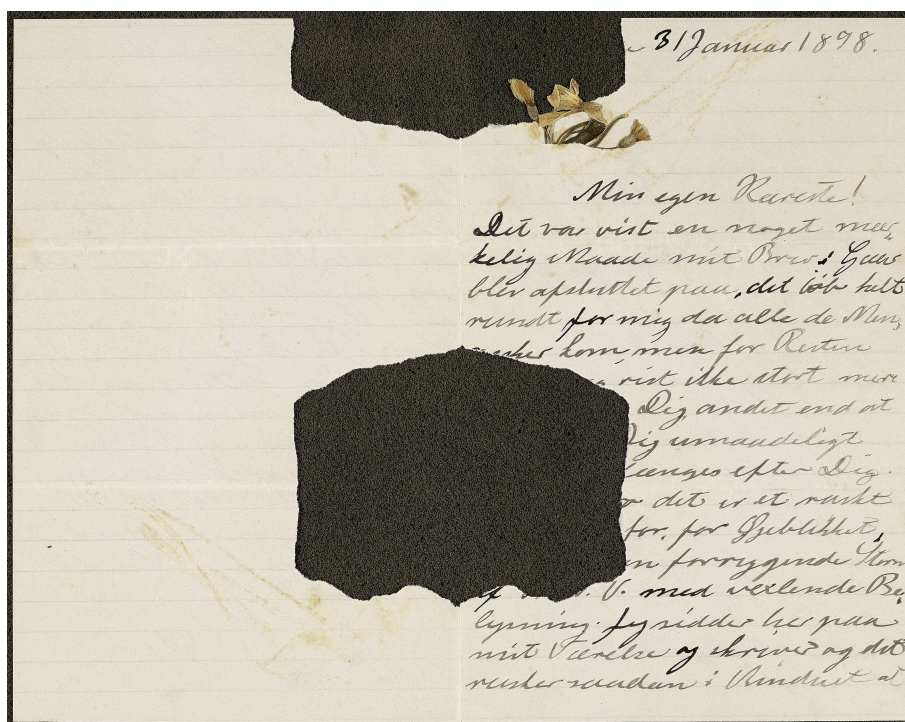 31 Januar 1898.
Min egen Kæreste!
Det var vist en noget mær-
kelig Maade mit Brev i Gaar
blev afsluttet paa, det løb helt
rundt for mig da alle de Men-
kom, men for Resten
vist ikke stort mere
Dig, andet end at
Dig umaadeligt
længes efter Dig.
det er et raskt
for, for Øjeblikket,
forrygende Storm
V. med vexlende Be-
lysning. Jeg sidder her paa
mit Værelse og skriver og det
rusker saadan i Vinduet at